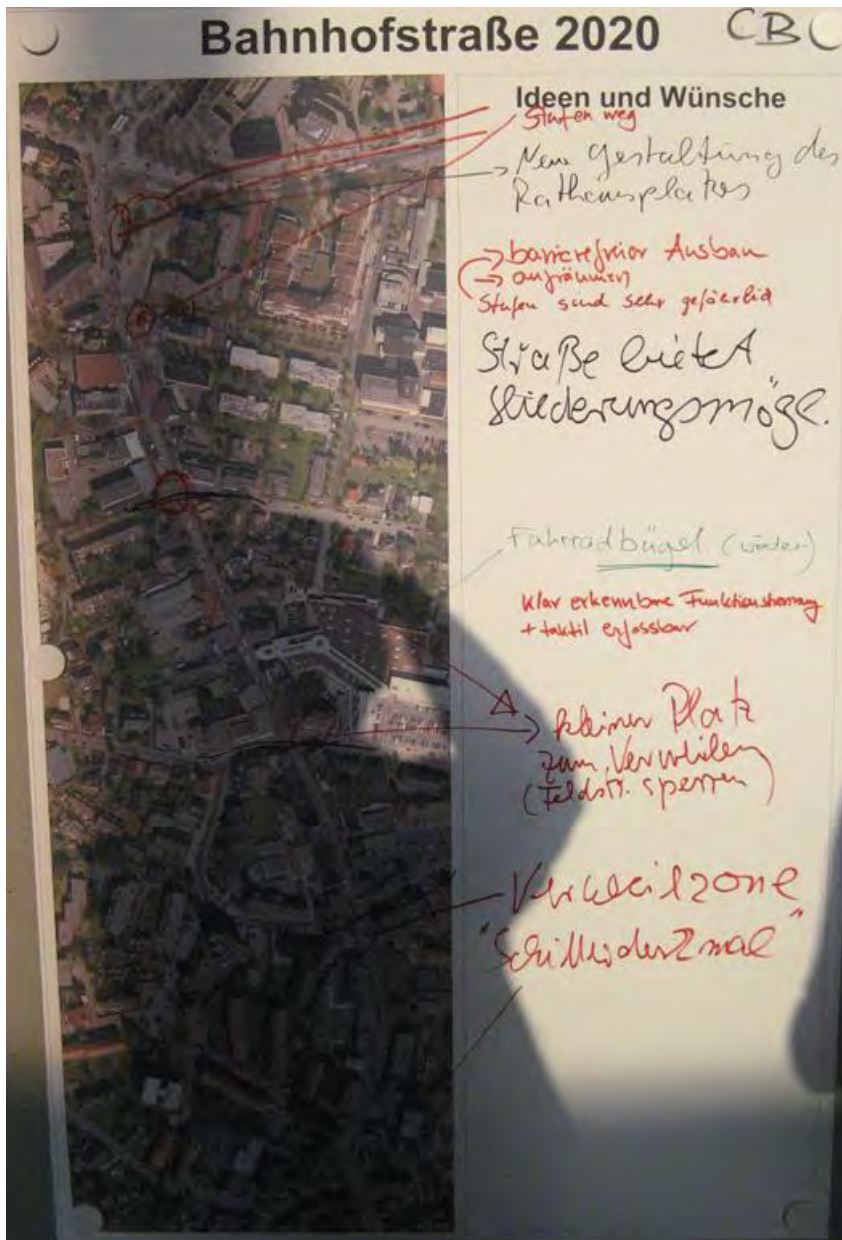 Bahnhofstraße 2020
CB
Ideen und Wünsche
Stufen weg
Neue Gestaltung des
Rathausplatzes
barrierefreier Ausbau
aufräumen
Stufen sind sehr gefährlich
Straße bietet
Gliederungsmögl.
Fahrradbügel (wieder)
klar erkennbare Funktionstrennung
+ taktil erfassbar
kleiner Platz
zum Verweilen
(Feldstr. sperren)
Verweilzone
"Schillerdenkmal"